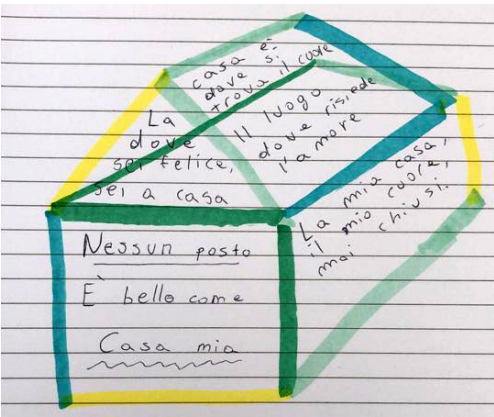 casa è
dove si
trova il cuore
La
dove
sei felice,
sei a casa
Il luogo
dove risiede
l'amore
La mia casa,
il mio cuore,
mai chiusi.
Nessun posto
È bello come
Casa mia